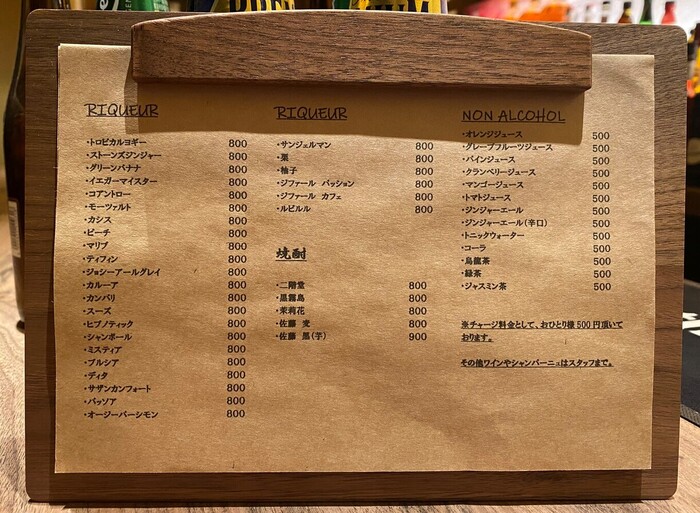 RIQUEUR
・トロピカルヨギー 800
・ストーンズジンジャー 800
・グリーンバナナ 800
・イエガーマイスター 800
・コアントロー 800
・モーツァルト 800
・カシス 800
・ピーチ 800
・マリブ 800
・ティフィン 800
・ジョシーアールグレイ 800
・カルーア 800
・カンパリ 800
・スーズ 800
・ヒプノティック 800
・シャンボール 800
・ミスティア 800
・ブルシア 800
・ディタ 800
・サザンカンフォート 800
・パッソア 800
・オージーパーシモン 800
RIQUEUR
・サンジェルマン 800
・栗 800
・柚子 800
・ジファール パッション 800
・ジファール カフェ 800
・ルビルル 800
焼酎
・二階堂 800
・黒霧島 800
・茉莉花 800
・佐藤 麦 800
・佐藤 黒(芋) 900
NON ALCOHOL
・オレンジジュース 500
・グレープフルーツジュース 500
・パインジュース 500
・クランベリージュース 500
・マンゴージュース 500
・トマトジュース 500
・ジンジャーエール 500
・ジンジャーエール(辛口) 500
・トニックウォーター 500
・コーラ 500
・烏龍茶 500
・緑茶 500
・ジャスミン茶 500
※チャージ料金として、おひとり様500円頂いて
おります。
その他ワインやシャンパーニュはスタッフまで。